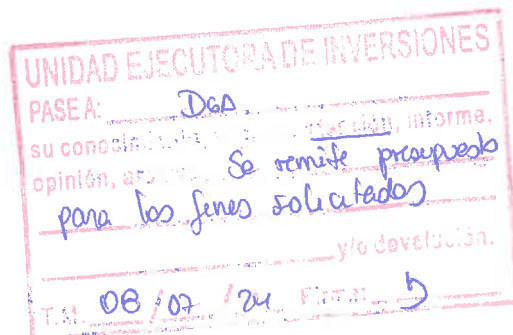 UNIDAD EJECUTORA DE INVERSIONES
PASE A: DGA
su conocimiento, informe,
opinión, Se remite presupuesto
para los fines solicitados
y/o devolución.
T.M. 08 / 07 / 24 Firma: